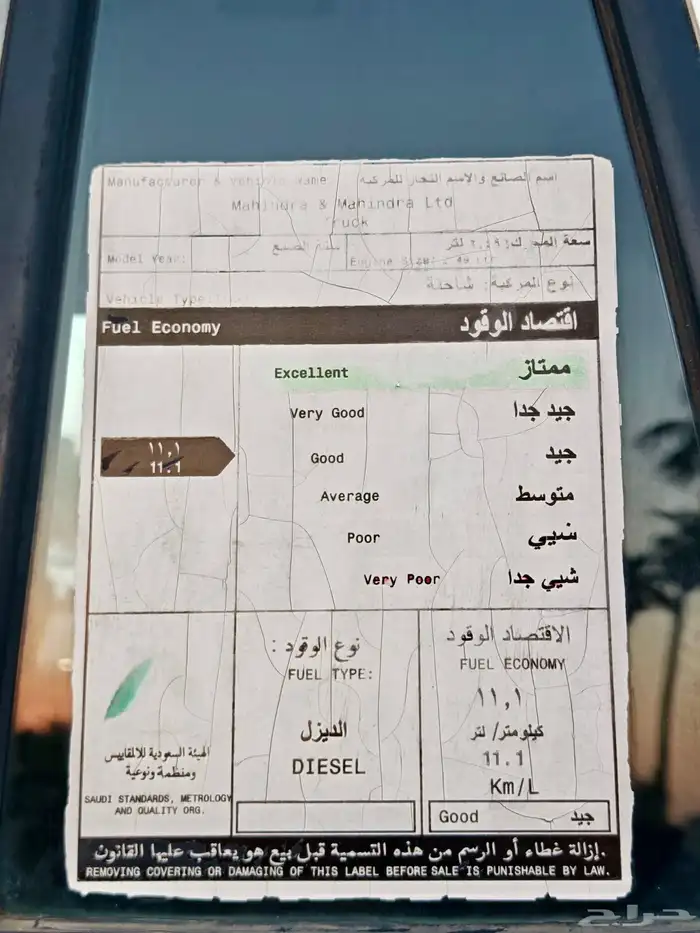 Manufacturer & Vehicle Name اسم الصانع والاسم التجار للمركبة
Mahindra & Mahindra Ltd
Truck
Model Year: سنة الصنع
سعة المحرك: ٢,٤٩ لتر
Engine Size:
Vehicle Type: نوع المركبة: شاحنة
Fuel Economy اقتصاد الوقود
Excellent ممتاز
Very Good جيد جدا
١١,١
11.1
Good جيد
Average متوسط
Poor شيي
Very Poor شيي جدا
نوع الوقود :
FUEL TYPE:
الديزل
DIESEL
الاقتصاد الوقود
FUEL ECONOMY
١١,١
كيلومتر/ لتر
11.1
Km/L
Good جيد
الهيئة السعودية للالمقاييس
ومنظمة ونوعية
SAUDI STANDARDS, METROLOGY
AND QUALITY ORG.
إزالة غطاء أو الرسم من هذه التسمية قبل بيع هو يعاقب عليها القانون.
REMOVING COVERING OR DAMAGING OF THIS LABEL BEFORE SALE IS PUNISHABLE BY LAW.
حراج